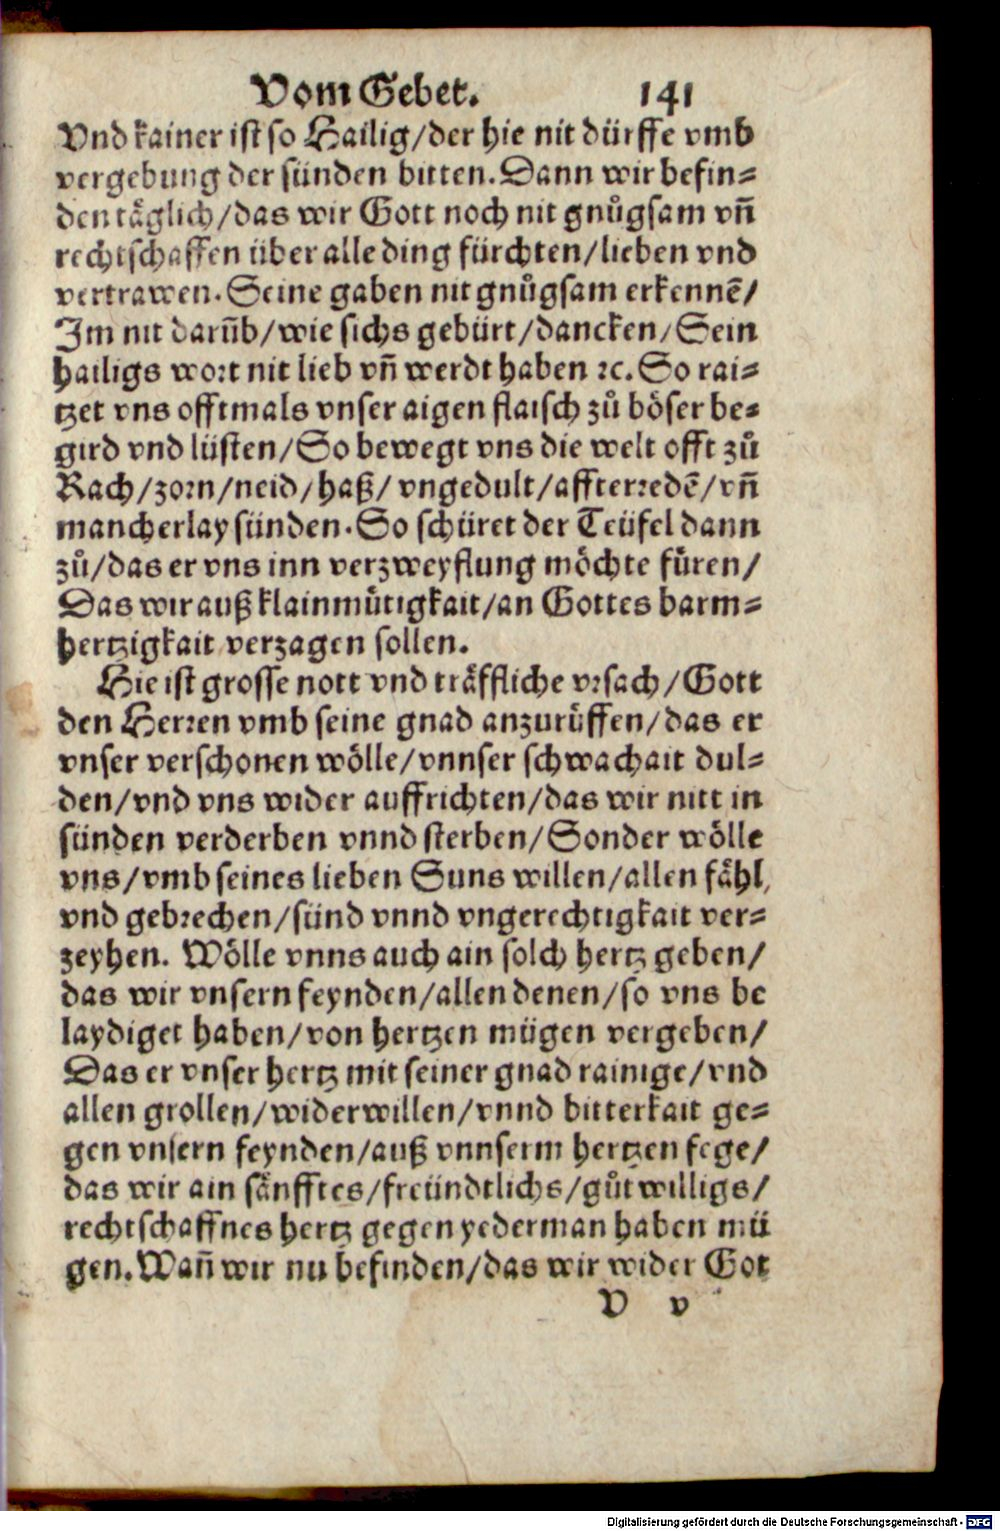 Vom Gebet. 141
Vnd kainer ist so Hailig/der hie nit dürffe vmb
vergebung der sünden bitten. Dann wir befin-
den täglich/das wir Gott noch nit gnůgsam vñ
rechtschaffen über alle ding fürchten/lieben vnd
vertrawen. Seine gaben nit gnůgsam erkennē/
Im nit darūb/wie sichs gebürt/dancken/Sein
hailigs wort nit lieb vñ werdt haben ꝛc. So rai-
tzet vns offtmals vnser aigen flaisch zů böser be-
gird vnd lüsten/So bewegt vns die welt offt zů
Rach/zorn/neid/haß/vngedult/affterredē/vñ
mancherlay sünden. So schüret der Teüfel dann
zů/das er vns inn verzweyflung möchte füren/
Das wir auß klainmütigkait/an Gottes barm-
hertzigkait verzagen sollen.
Hie ist grosse nott vnd träffliche vrsach/Gott
den Herren vmb seine gnad anzurüffen/das er
vnser verschonen wölle/vnnser schwachait dul-
den/vnd vns wider auffrichten/das wir nitt in
sünden verderben vnnd sterben/Sonder wölle
vns/vmb seines lieben Suns willen/allen fähl,
vnd gebrechen/sünd vnnd vngerechtigkait ver-
zeyhen. Wölle vnns auch ain solch hertz geben/
das wir vnsern feynden/allen denen/so vns be
laydiget haben/von hertzen mügen vergeben/
Das er vnser hertz mit seiner gnad rainige/vnd
allen grollen/widerwillen/vnnd bitterkait ge-
gen vnsern feynden/auß vnnserm hertzen fege/
das wir ain sänfftes/freündtlichs/gůtwilligs/
rechtschaffnes hertz gegen yederman haben mü
gen. Wañ wir nu befinden/das wir wider Got
V v
Digitalisierung gefördert durch die Deutsche Forschungsgemeinschaft - DFG